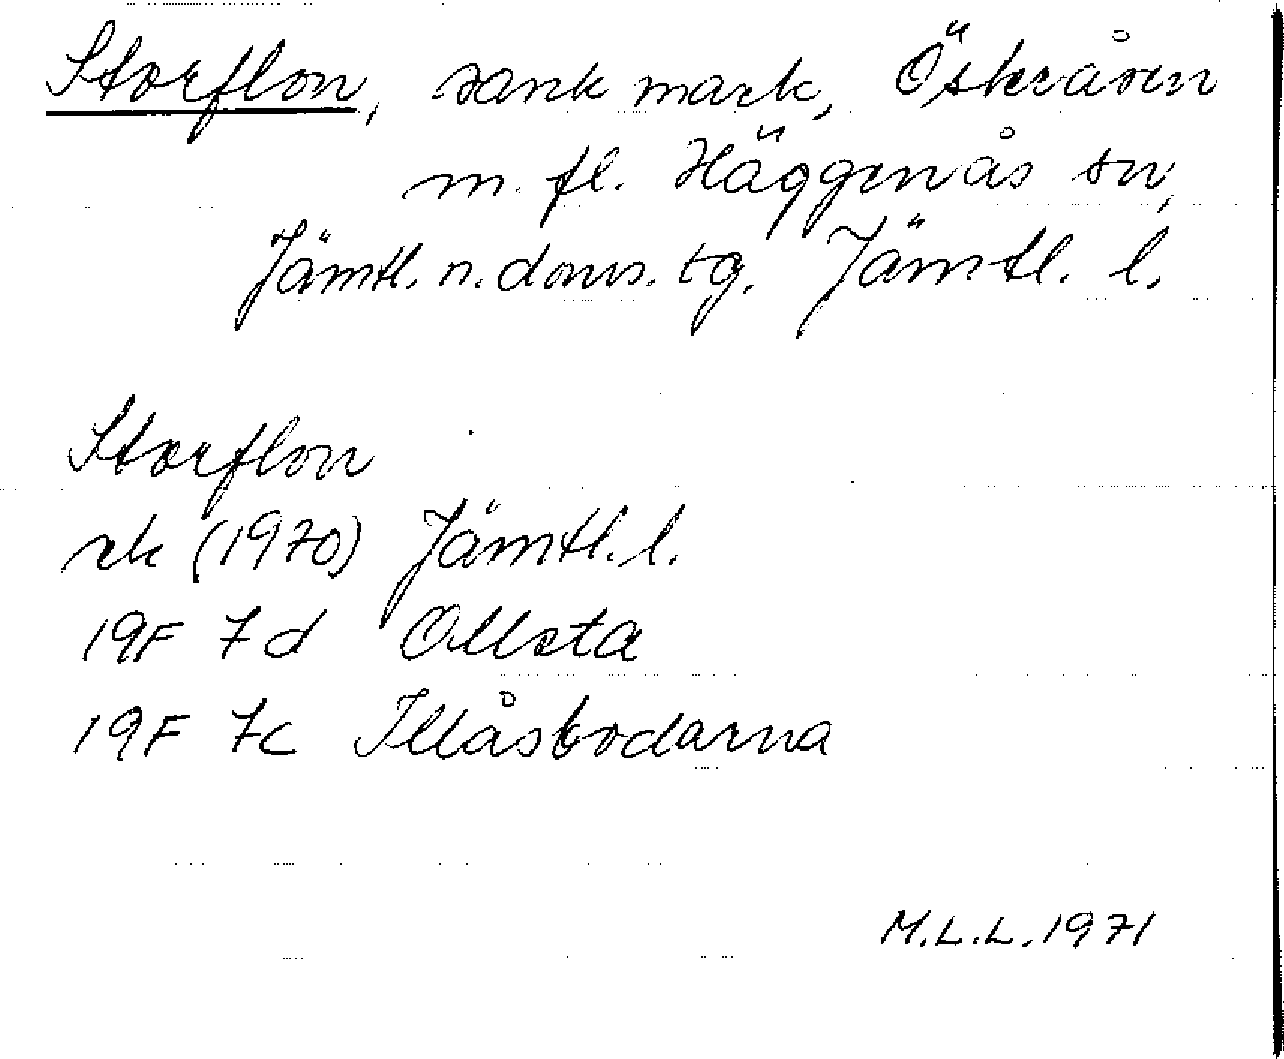 Storflon, sank mark, Öskråsen
m. fl. Häggenås sn,
Jämtl. n. doms. tg. Jämtl. l.
Storflon
rk (1970) Jämtl. l.
19F 7d Ollsta
19F 7c Illåsbodarna
M.L.L. 1971